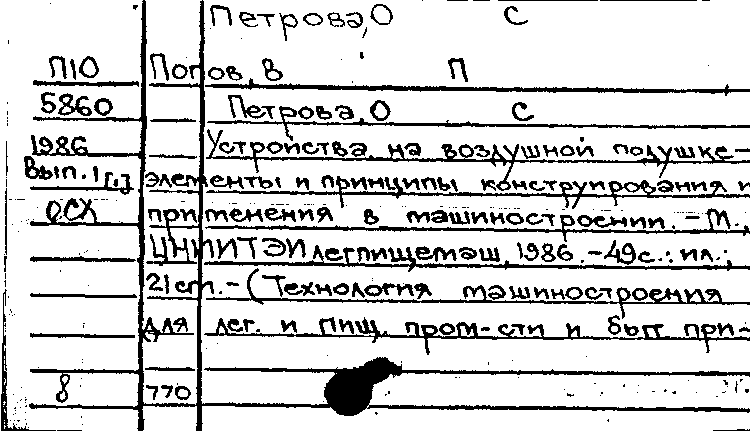 Петрова, О С
П10 Попов, В П
5860 Петрова, О С
1986 Устройства на воздушной подушке-
Вып. 1[.] элементы и принципы конструирования и
ОСХ применения в машиностроении. - М.,
ЦНИИТЭИлегпищемаш, 1986. - 49с.: ил.;
21 cm. - (Технология машиностроения
для лег. и пищ. пром-сти и быт при-
8 770